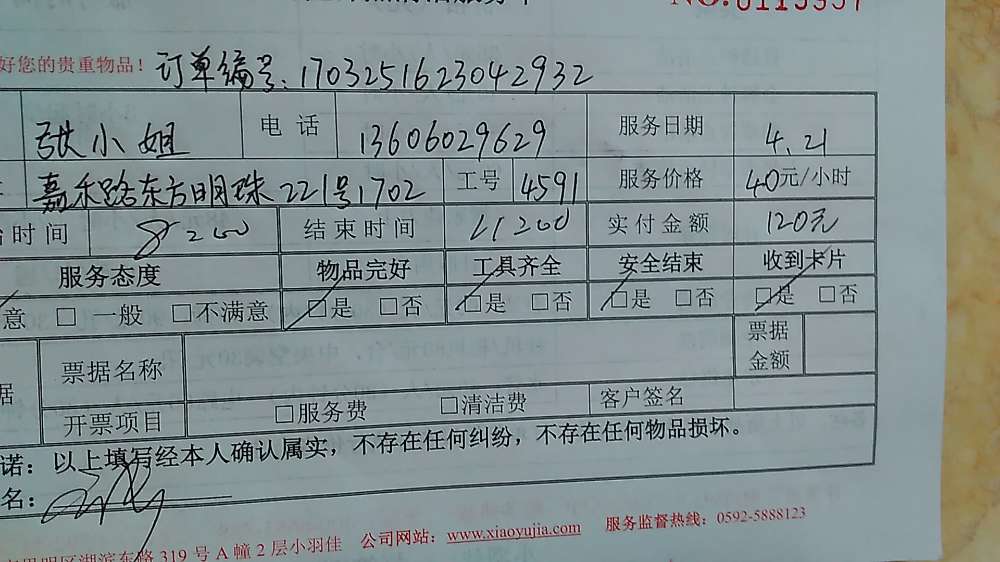 NO.0115357
好您的贵重物品！ 订单编号：1703251623042932
小姐 电话 13606029629 服务日期 4.21
嘉禾路东方明珠221号1702 工号 4591 服务价格 40元/小时
时间 8:00 结束时间 11:00 实付金额 120元
服务态度 物品完好 工具齐全 安全结束 收到卡片
意 □ 一般 □不满意 □是 □否 □是 □否 □是 □否 □是 □否
据 票据名称 票据金额
开票项目 □服务费 □清洁费 客户签名
诺：以上填写经本人确认属实，不存在任何纠纷，不存在任何物品损坏。
名：
思明区湖滨东路319号A幢2层小羽佳 公司网站：www.xiaoyujia.com 服务监督热线：0592-5888123